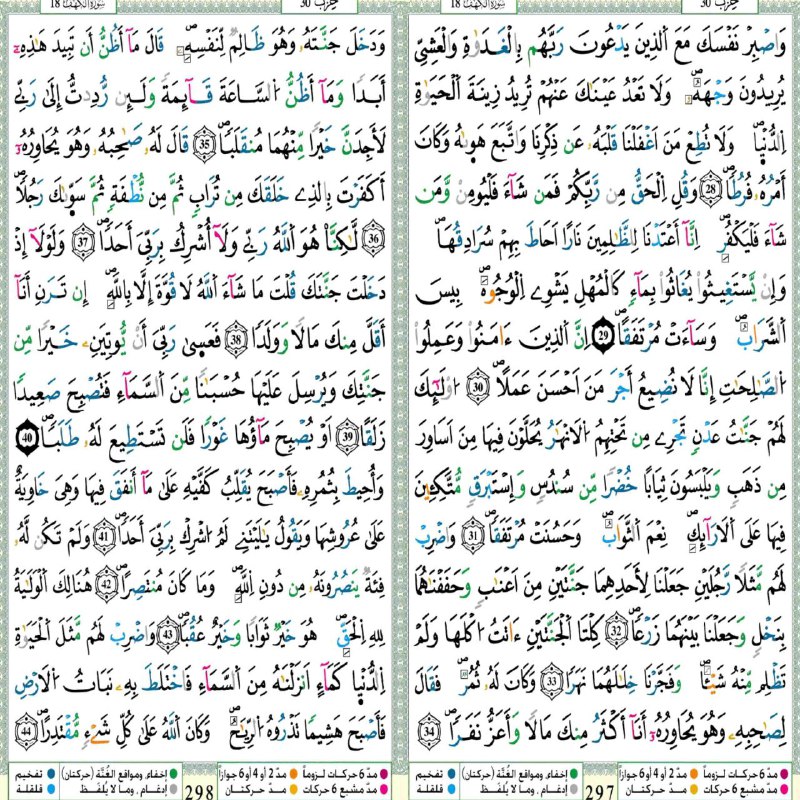 حزب 30
سورة الكهف 18
وَاصْبِرْ نَفْسَكَ مَعَ اَلذِينَ يَدْعُونَ رَبَّهُم بِالْغَدَوٰةِ وَالْعَشِيِّ
يُرِيدُونَ وَجْهَهُۥ وَلَا تَعْدُ عَيْنَٰكَ عَنْهُمْ تُرِيدُ زِينَةَ اَلْحَيَوٰةِ
اِلدُّنْيَا وَلَا تُطِعْ مَنَ اَغْفَلْنَا قَلْبَهُۥ عَن ذِكْرِنَا وَاتَّبَعَ هَوٜىٰهُ وَكَانَ
أَمْرُهُۥ فُرُطاٗ 28 وَقُلِ اِلْحَقُّ مِن رَّبِّكُمْ فَمَن شَآءَ فَلْيُومِن وَّمَن
شَآءَ فَلْيَكْفُرِ اِنَّآ أَعْتَدْنَا لِلظَّٰلِمِينَ نَاراً اَحَاطَ بِهِمْ سُرَادِقُهَا
وَإِنْ يَّسْتَغِيثُواْ يُغَاثُواْ بِمَآءٖ كَالْمُهْلِ يَشْوِے اِلْوُجُوهَ بِيسَ
اَلشَّرَابُ وَسَآءَتْ مُرْتَفَقاً 29 اِنَّ اَلذِينَ ءَامَنُواْ وَعَمِلُواْ
اُلصَّٰلِحَٰتِ إِنَّا لَا نُضِيعُ أَجْرَ مَنَ اَحْسَنَ عَمَلاً 30 اُوْلَٰٓئِكَ
لَهُمْ جَنَّٰتُ عَدْنٖ تَجْرِے مِن تَحْتِهِمُ اُلَانْهَٰرُ يُحَلَّوْنَ فِيهَا مِنَ اَسَاوِرَ
مِن ذَهَبٖ وَيَلْبَسُونَ ثِيَاباً خُضْراٗ مِّن سُندُسٖ وَإِسْتَبْرَقٖ مُّتَّكِـِٕينَ
فِيهَا عَلَى اَلَارَآئِكِ نِعْمَ اَلثَّوَابُ وَحَسُنَتْ مُرْتَفَقاٗ 31 وَاضْرِبْ
لَهُم مَّثَلاٗ رَّجُلَيْنِ جَعَلْنَا لِأَحَدِهِمَا جَنَّتَيْنِ مِنَ اَعْنَٰبٖ وَحَفَفْنَٰهُمَا
بِنَخْلٖ وَجَعَلْنَا بَيْنَهُمَا زَرْعاٗ 32 كِلْتَا اَلْجَنَّتَيْنِ ءَاتَتُ اُكْلَهَا وَلَمْ
تَظْلِم مِّنْهُ شَيْـٔاٗ وَفَجَّرْنَا خِلَٰلَهُمَا نَهَراٗ 33 وَكَانَ لَهُۥ ثُمُرٞ فَقَالَ
لِصَٰحِبِهِۦ وَهُوَ يُحَاوِرُهُۥٓ أَنَآ أَكْثَرُ مِنكَ مَالاٗ وَأَعَزُّ نَفَراٗ 34
مدّ 6 حركات لزوماً مدّ 2 أو 4 أو 6 جوازاً إخفاء، ومواقع الغُنَّة (حركتان) تفخيم
مدّ مشبع 6 حركات مدّ حركتان إدغام، وما لا يُلفَظ قلقلة
297
حزب 30
سورة الكهف 18
وَدَخَلَ جَنَّتَهُۥ وَهُوَ ظَالِمٞ لِّنَفْسِهِۦ قَالَ مَآ أَظُنُّ أَن تَبِيدَ هَٰذِهِۦٓ
أَبَداٗ وَمَآ أَظُنُّ اُلسَّاعَةَ قَآئِمَةٗ وَلَئِن رُّدِدتُّ إِلَىٰ رَبِّے
لَأَجِدَنَّ خَيْراٗ مِّنْهُمَا مُنقَلَباٗ 35 قَالَ لَهُۥ صَاحِبُهُۥ وَهُوَ يُحَاوِرُهُۥٓ
أَكَفَرْتَ بِالذِے خَلَقَكَ مِن تُرَابٖ ثُمَّ مِن نُّطْفَةٖ ثُمَّ سَوّٜىٰكَ رَجُلاٗ
36 لَّٰكِنَّا هُوَ اَللَّهُ رَبِّے وَلَآ أُشْرِكُ بِرَبِّيَ أَحَداٗ 37 وَلَوْلَآ إِذْ
دَخَلْتَ جَنَّتَكَ قُلْتَ مَا شَآءَ اَللَّهُ لَا قُوَّةَ إِلَّا بِاللَّهِ إِن تَرَنِ أَنَآ
أَقَلَّ مِنكَ مَالاٗ وَوَلَداٗ 38 فَعَسٜىٰ رَبِّيَ أَنْ يُّوتِيَنِۦ خَيْراٗ مِّن
جَنَّتِكَ وَيُرْسِلَ عَلَيْهَا حُسْبَاناٗ مِّنَ اَلسَّمَآءِ فَتُصْبِحَ صَعِيداٗ
زَلَقاً 39 اَوْ يُصْبِحَ مَآؤُهَا غَوْراٗ فَلَن تَسْتَطِيعَ لَهُۥ طَلَباٗ 40
وَأُحِيطَ بِثُمُرِهِۦ فَأَصْبَحَ يُقَلِّبُ كَفَّيْهِ عَلَىٰ مَآ أَنفَقَ فِيهَا وَهِيَ خَاوِيَةٌ
عَلَىٰ عُرُوشِهَا وَيَقُولُ يَٰلَيْتَنِے لَمُ اُشْرِكْ بِرَبِّيَ أَحَداٗ 41 وَلَمْ تَكُن لَّهُۥ
فِئَةٞ يَنصُرُونَهُۥ مِن دُونِ اِللَّهِ وَمَا كَانَ مُنتَصِراً 42 هُنَالِكَ اَلْوَلَٰيَةُ
لِلهِ اِلْحَقِّ هُوَ خَيْرٞ ثَوَاباٗ وَخَيْرٌ عُقُباٗ 43 وَاضْرِبْ لَهُم مَّثَلَ اَلْحَيَوٰةِ
اِلدُّنْيَا كَمَآءٍ اَنزَلْنَٰهُ مِنَ اَلسَّمَآءِ فَاخْتَلَطَ بِهِۦ نَبَاتُ اُلَارْضِ
فَأَصْبَحَ هَشِيماٗ تَذْرُوهُ اُلرِّيَٰحُ وَكَانَ اَللَّهُ عَلَىٰ كُلِّ شَےْءٖ مُّقْتَدِراً 44
مدّ 6 حركات لزوماً مدّ 2 أو 4 أو 6 جوازاً إخفاء، ومواقع الغُنَّة (حركتان) تفخيم
مدّ مشبع 6 حركات مدّ حركتان إدغام، وما لا يُلفَظ قلقلة
298